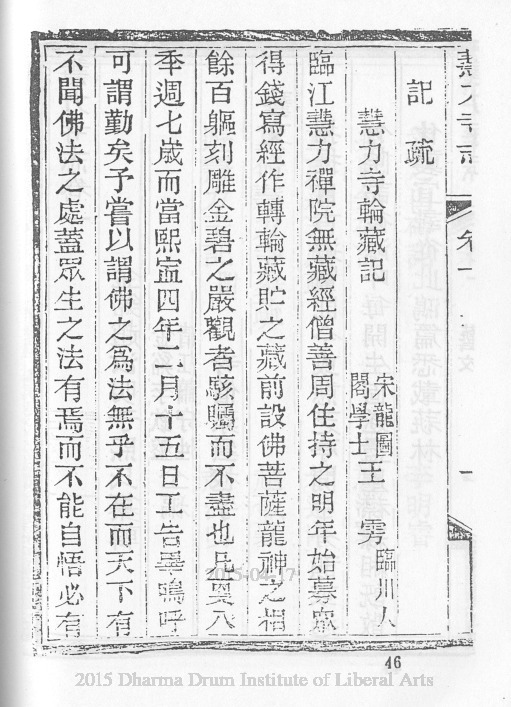 記疏
慧力寺輪藏記 宋龍圖閣學士王 雱臨川人
臨江慧力禪院無藏經僧善周住持之明年始募眾
得錢寫經作轉輪藏貯之藏前設佛菩薩龍神之相
餘百軀刻雕金碧之嚴觀者駭矚而不盡也凡更八
季週七歲而當熙寍四年二月十五日工告畢嗚呼
可謂勤矣予嘗以謂佛之爲法無乎不在而天下有
不聞佛法之處蓋眾生之法有焉而不能自悟必有
46
2015 Dharma Drum Institute of Liberal Arts